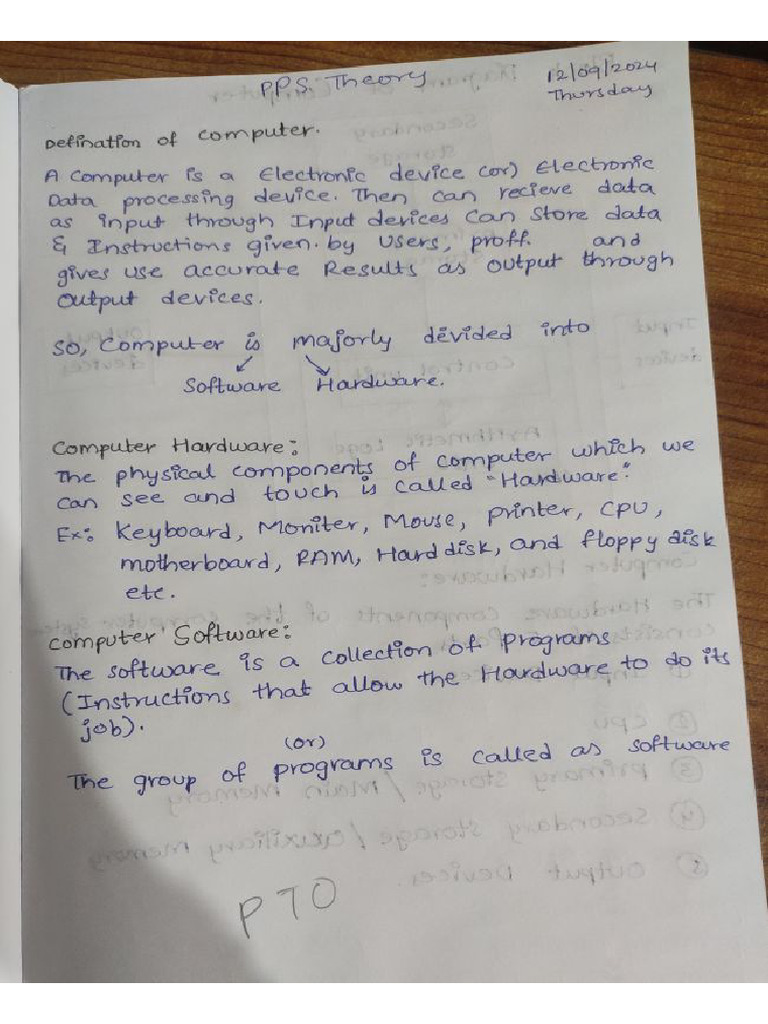 P.P.S. Theory
12/09/2024
Thursday
Defination of computer.
A computer is a Electronic device (or) Electronic
Data processing device. Then can recieve data
as input through Input devices can store data
& Instructions given. by Users, proff. and
gives use accurate Results as output through
output devices.
So, Computer is majorly devided into
Software Hardware.
Computer Hardware:
The physical components of computer which we
can see and touch is called "Hardware".
Ex: Keyboard, Moniter, Mouse, printer, CPU,
motherboard, RAM, Hard disk, and floppy disk
etc.
Computer Software:
The software is a collection of programs
(Instructions that allow the Hardware to do its
job).
(or)
The group of programs is called as software
PTO